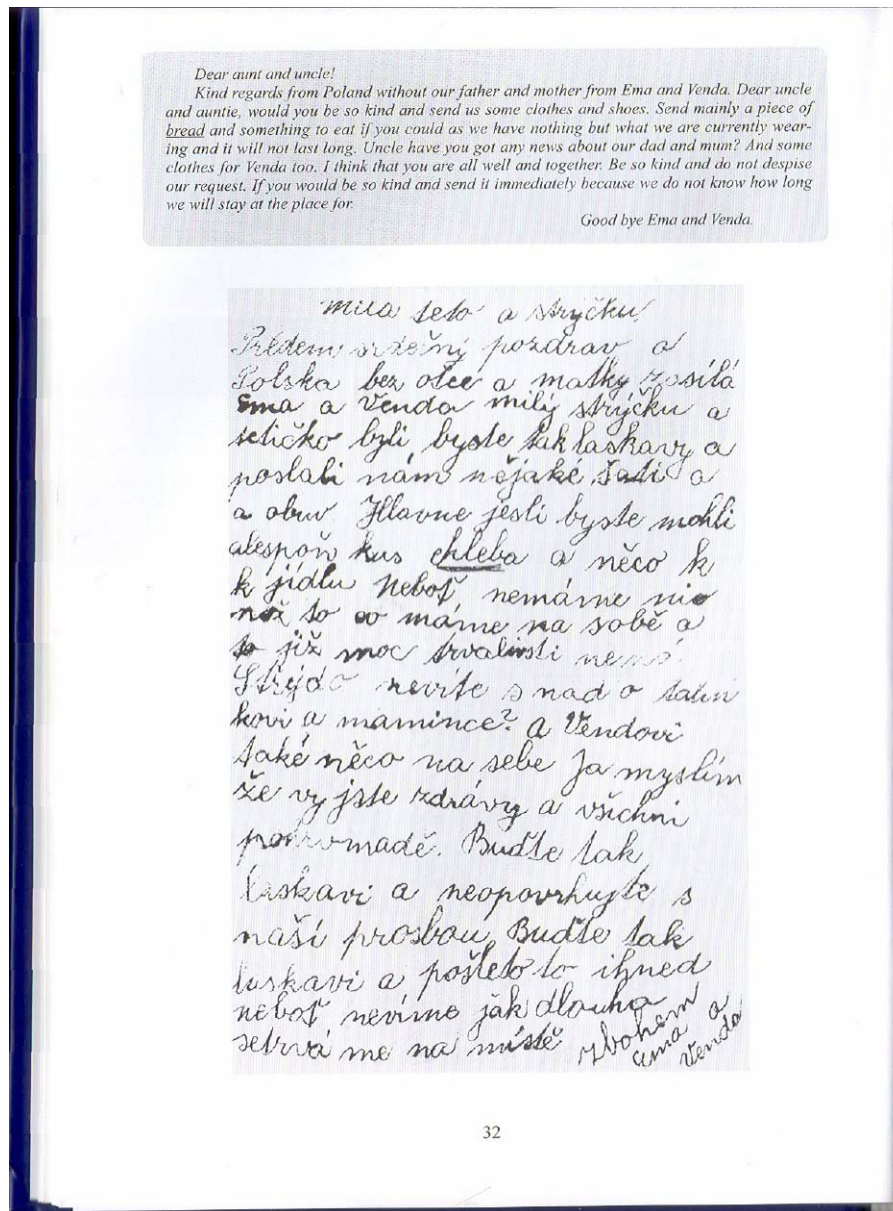 Dear aunt and uncle!
Kind regards from Poland without our father and mother from Ema and Venda. Dear uncle
and auntie, would you be so kind and send us some clothes and shoes. Send mainly a piece of
bread and something to eat if you could as we have nothing but what we are currently wear-
ing and it will not last long. Uncle have you got any news about our dad and mum? And some
clothes for Venda too. I think that you are all well and together. Be so kind and do not despise
our request. If you would be so kind and send it immediately because we do not know how long
we will stay at the place for.
Good bye Ema and Venda.
Milá teto a strýčku!
Předem srdečný pozdrav a
Polska bez otce a matky zasílá
Ema a Venda milý strýčku a
tetičko byli byste tak laskavy a
poslali nám nějaké šati a
a obuv Hlavne jesli byste mohli
alespoň kus chleba a něco k
k jídlu Neboť nemáme nic
než to co máme na sobě a
to již moc trvalivsti nemá.
Strýdo nevíte snad o tatin
kovi a mamince? A Vendovi
také něco na sebe Ja myslím
že vy jste zdrávy a všichni
pohromadě. Buďte tak
laskavi a neopovrhujte s
naší prosbou Buďte tak
laskavi a pošleto to ihned
neboť nevíme jak dlouho
setrvá me na místě zbohem
Ema a
Venda
32